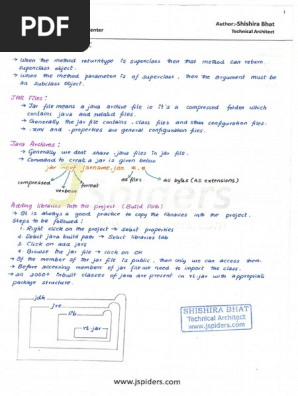 PDF
1
enter
Author:-Shishira Bhat
Technical Architect
→ When the method returntype is superclass then that method can return
superclass object.
→ When the method parameter is of superclass, then the argument must be
an subclass object.
JAR Files:
→ Jar file means a java archive file ie It's a compressed folder which
contains java and related files.
→ Generally the jar file contains .class files and other configuration files.
→ .xml and .properties are general configuration files.
Java Archives:
→ Generally we deal share .java files in jar file.
→ Command to create a jar is given below
jar jarname.jar *.*
compressed
version
format
all files
all types (all extensions)
Adding libraries into the project (Build Path)
→ It is always a good practice to copy the libraries into the project.
Steps to be followed:
1. Right click on the project → select properties
2. Select java build path → Select libraries tab
3. Click on add jars
4. Choose the jar file → click on OK
→ If the member of the jar file is public, then only we can access them.
→ Before accessing members of jar file we need to import the class.
→ All 3000+ inbuilt classes of java are present in rt.jar with appropriate
package structure.
jdk
jre
lib
rt.jar
SHISHIRA BHAT
Technical Architect
www.jspiders.com
jspiders
www.jspiders.com